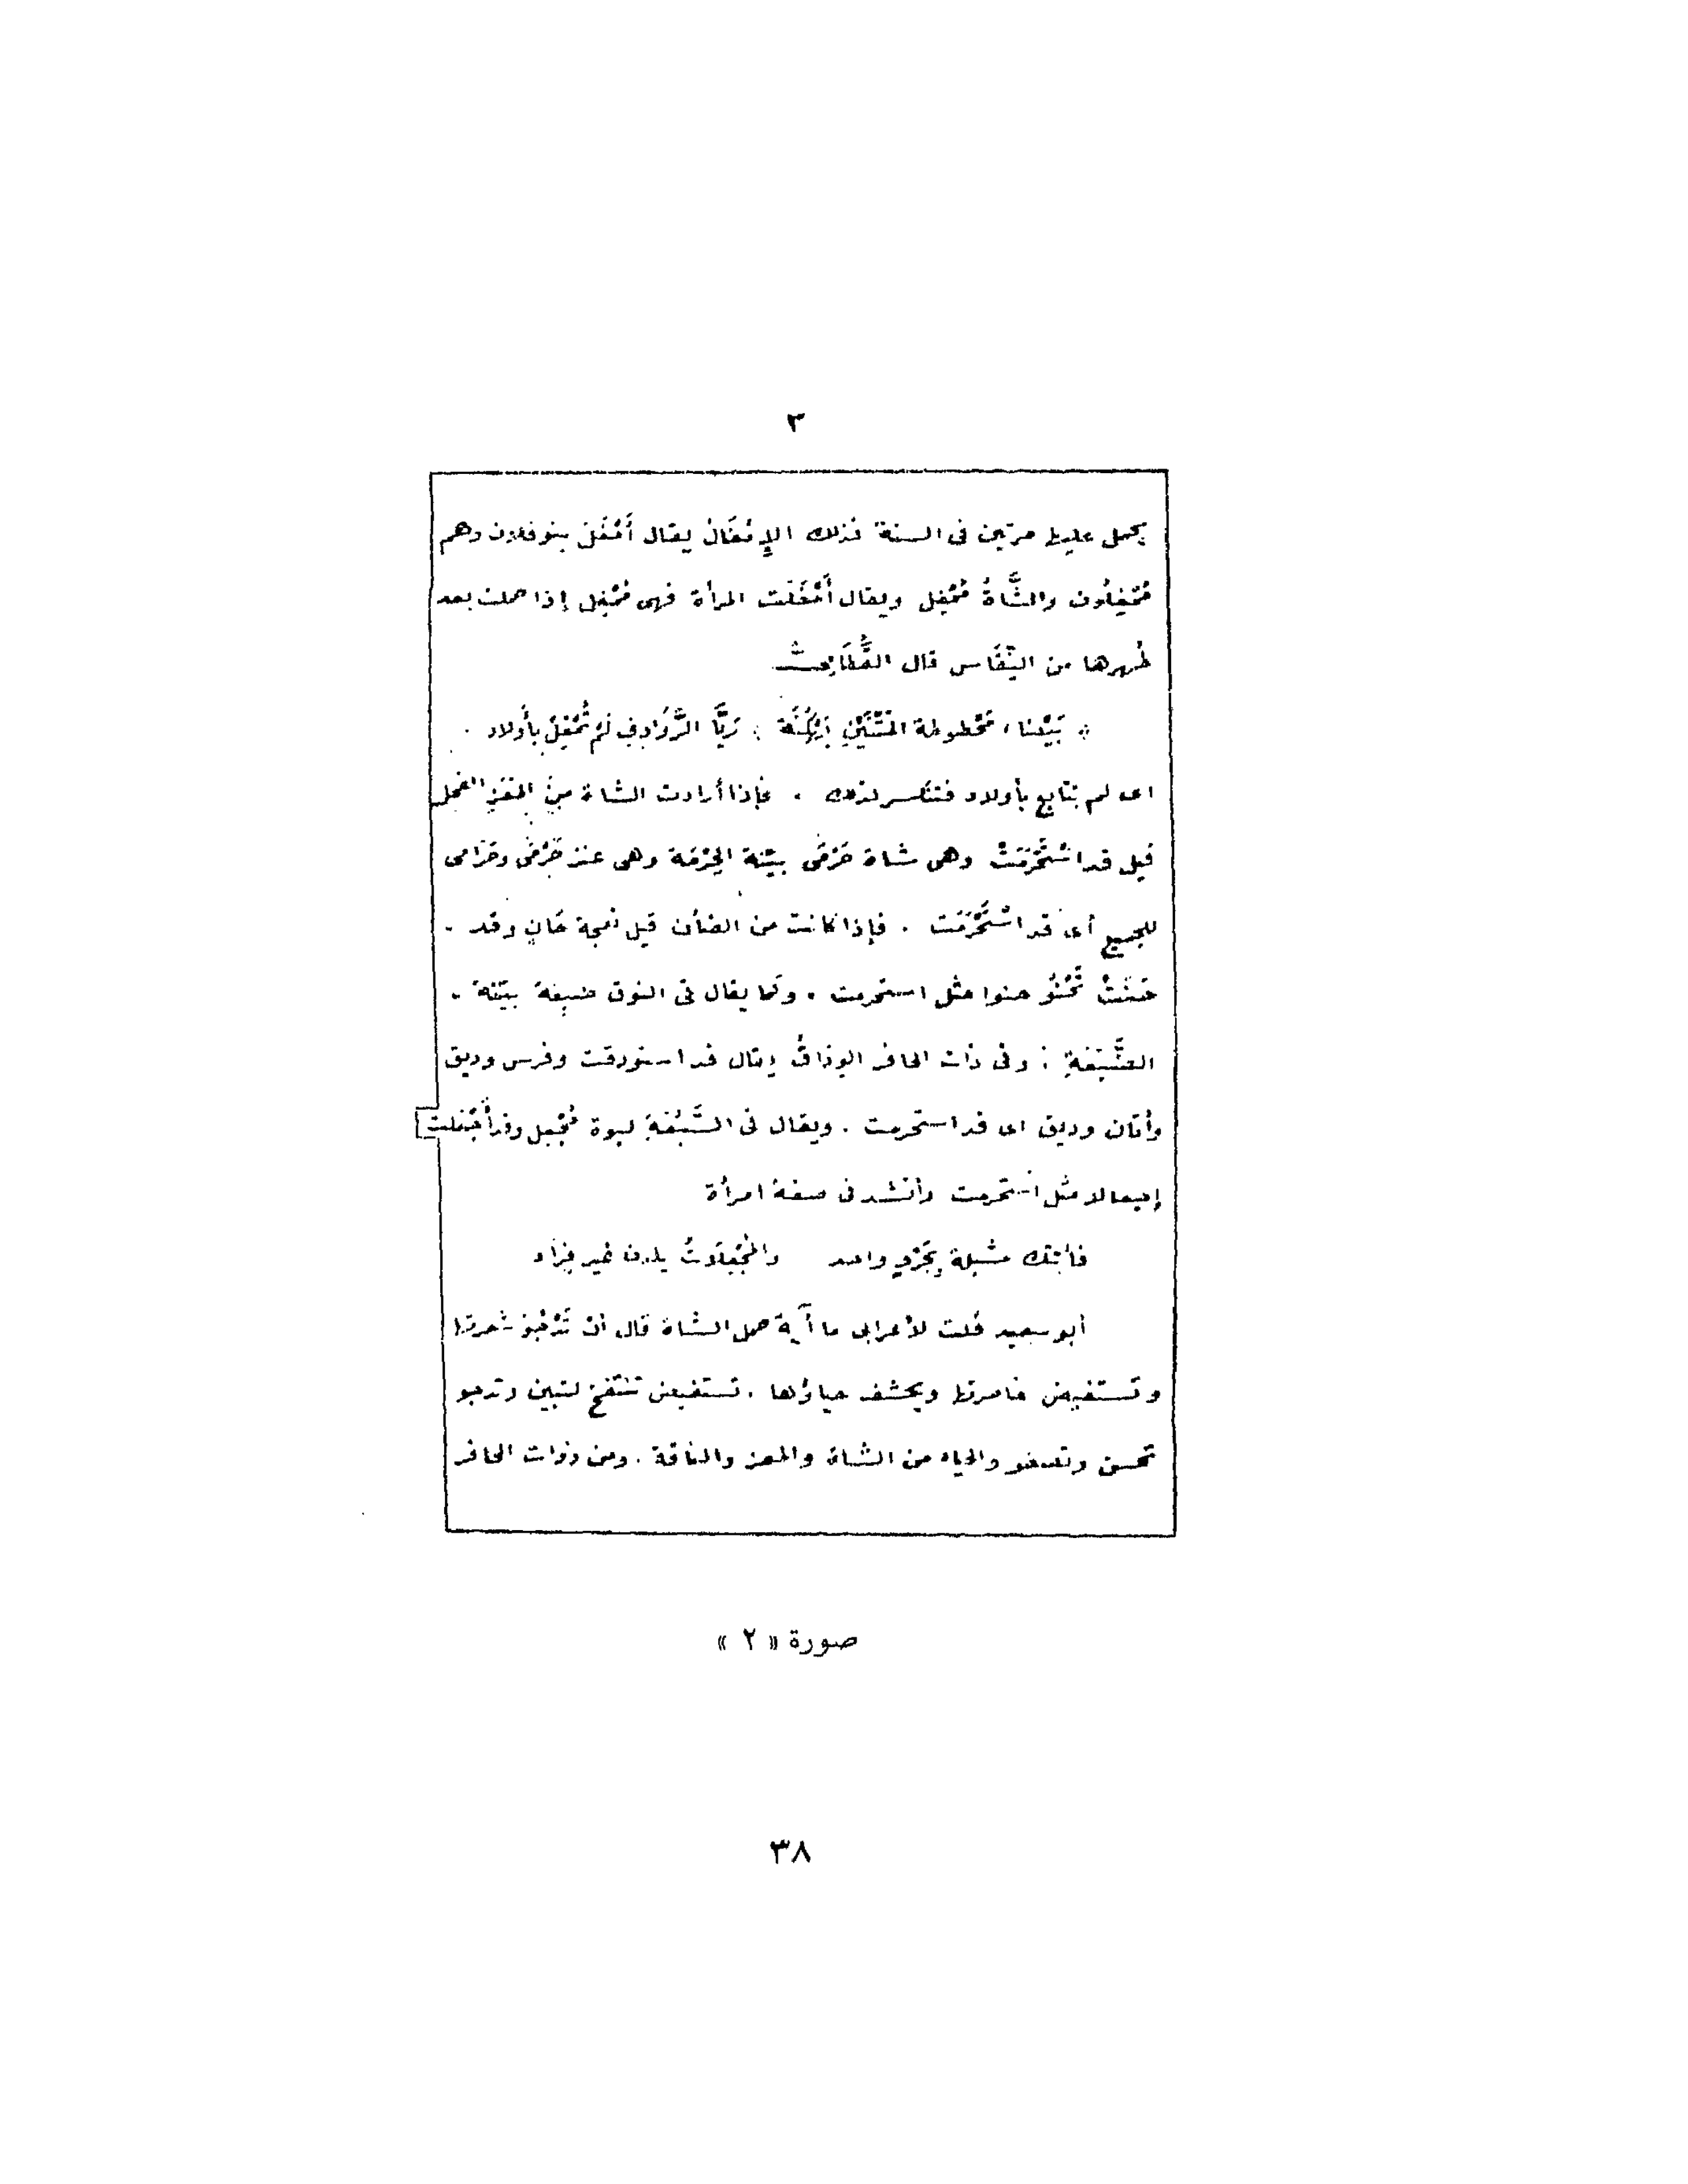 ٣
يحمل عليها مرتين فى السنة فذلك الإِمْغَالُ يقال أَمْغَلَ بنو فلان وهم
مُمْغِلُون والشَّاةُ مُمْغِل ويقال أَمْغَلَت المرأة فهى مُمْغِل إذا حملت بعد
طُهرها من النِّفَاس قال القُطَامِىّ
بَيْضاء مَحْطوطة المَتْنَيْنِ بَهْكَنَة : رَيَّا الرَّوَادِفِ لَمْ تُمْغِلْ بأَولاد .
اى لم تتابع بأولاد فتنكسر لذلك . فإذا أرادت الشاة مِنَ المَعَزِ الفحل
قيل قد اسْتَحْرَمَتْ وهى شاة حَرْمَى بيّنة الحِرْمَة وهى عنز حَرْمَى وحَرَامى
للجميع أى قد اسْتَحْرَمَت . فإذا كانت من الضأن قيل نعجة حَانٍ وقد .
حَنَتْ تَحْنُو حنوا مثل استحرمت . وكما يقال فى النوق ضبعة بيّنة .
الضَّبَعَةِ : وفى ذات الحافر الوِدَاقُ يقال قد استودقت وفرس وديق
وأتان وديق اى قد استحرمت . ويقال فى السَّبُعَةِ لبوة مُجْعِل وقد أَجْعَلت
إجعالا مثل استحرمت وأنشد فى صفة امرأة
فأتتك مشبلة بِجَرْوٍ واحد والمُجْعِلَاتُ يلدن غير فِرَاد
أبو سعيد قلت لأعرابى ما آية حمل الشاة قال أن تَدْجُوَ شعرتها
وتستفيض خاصرتها ويحشف حياؤها . تستفيض تنتفخ لتبين وتدجو
تحسن وتصفو والحياء من الشاة والمعز والناقة . ومن ذوات الحافر
صورة « ٢ »
٣٨